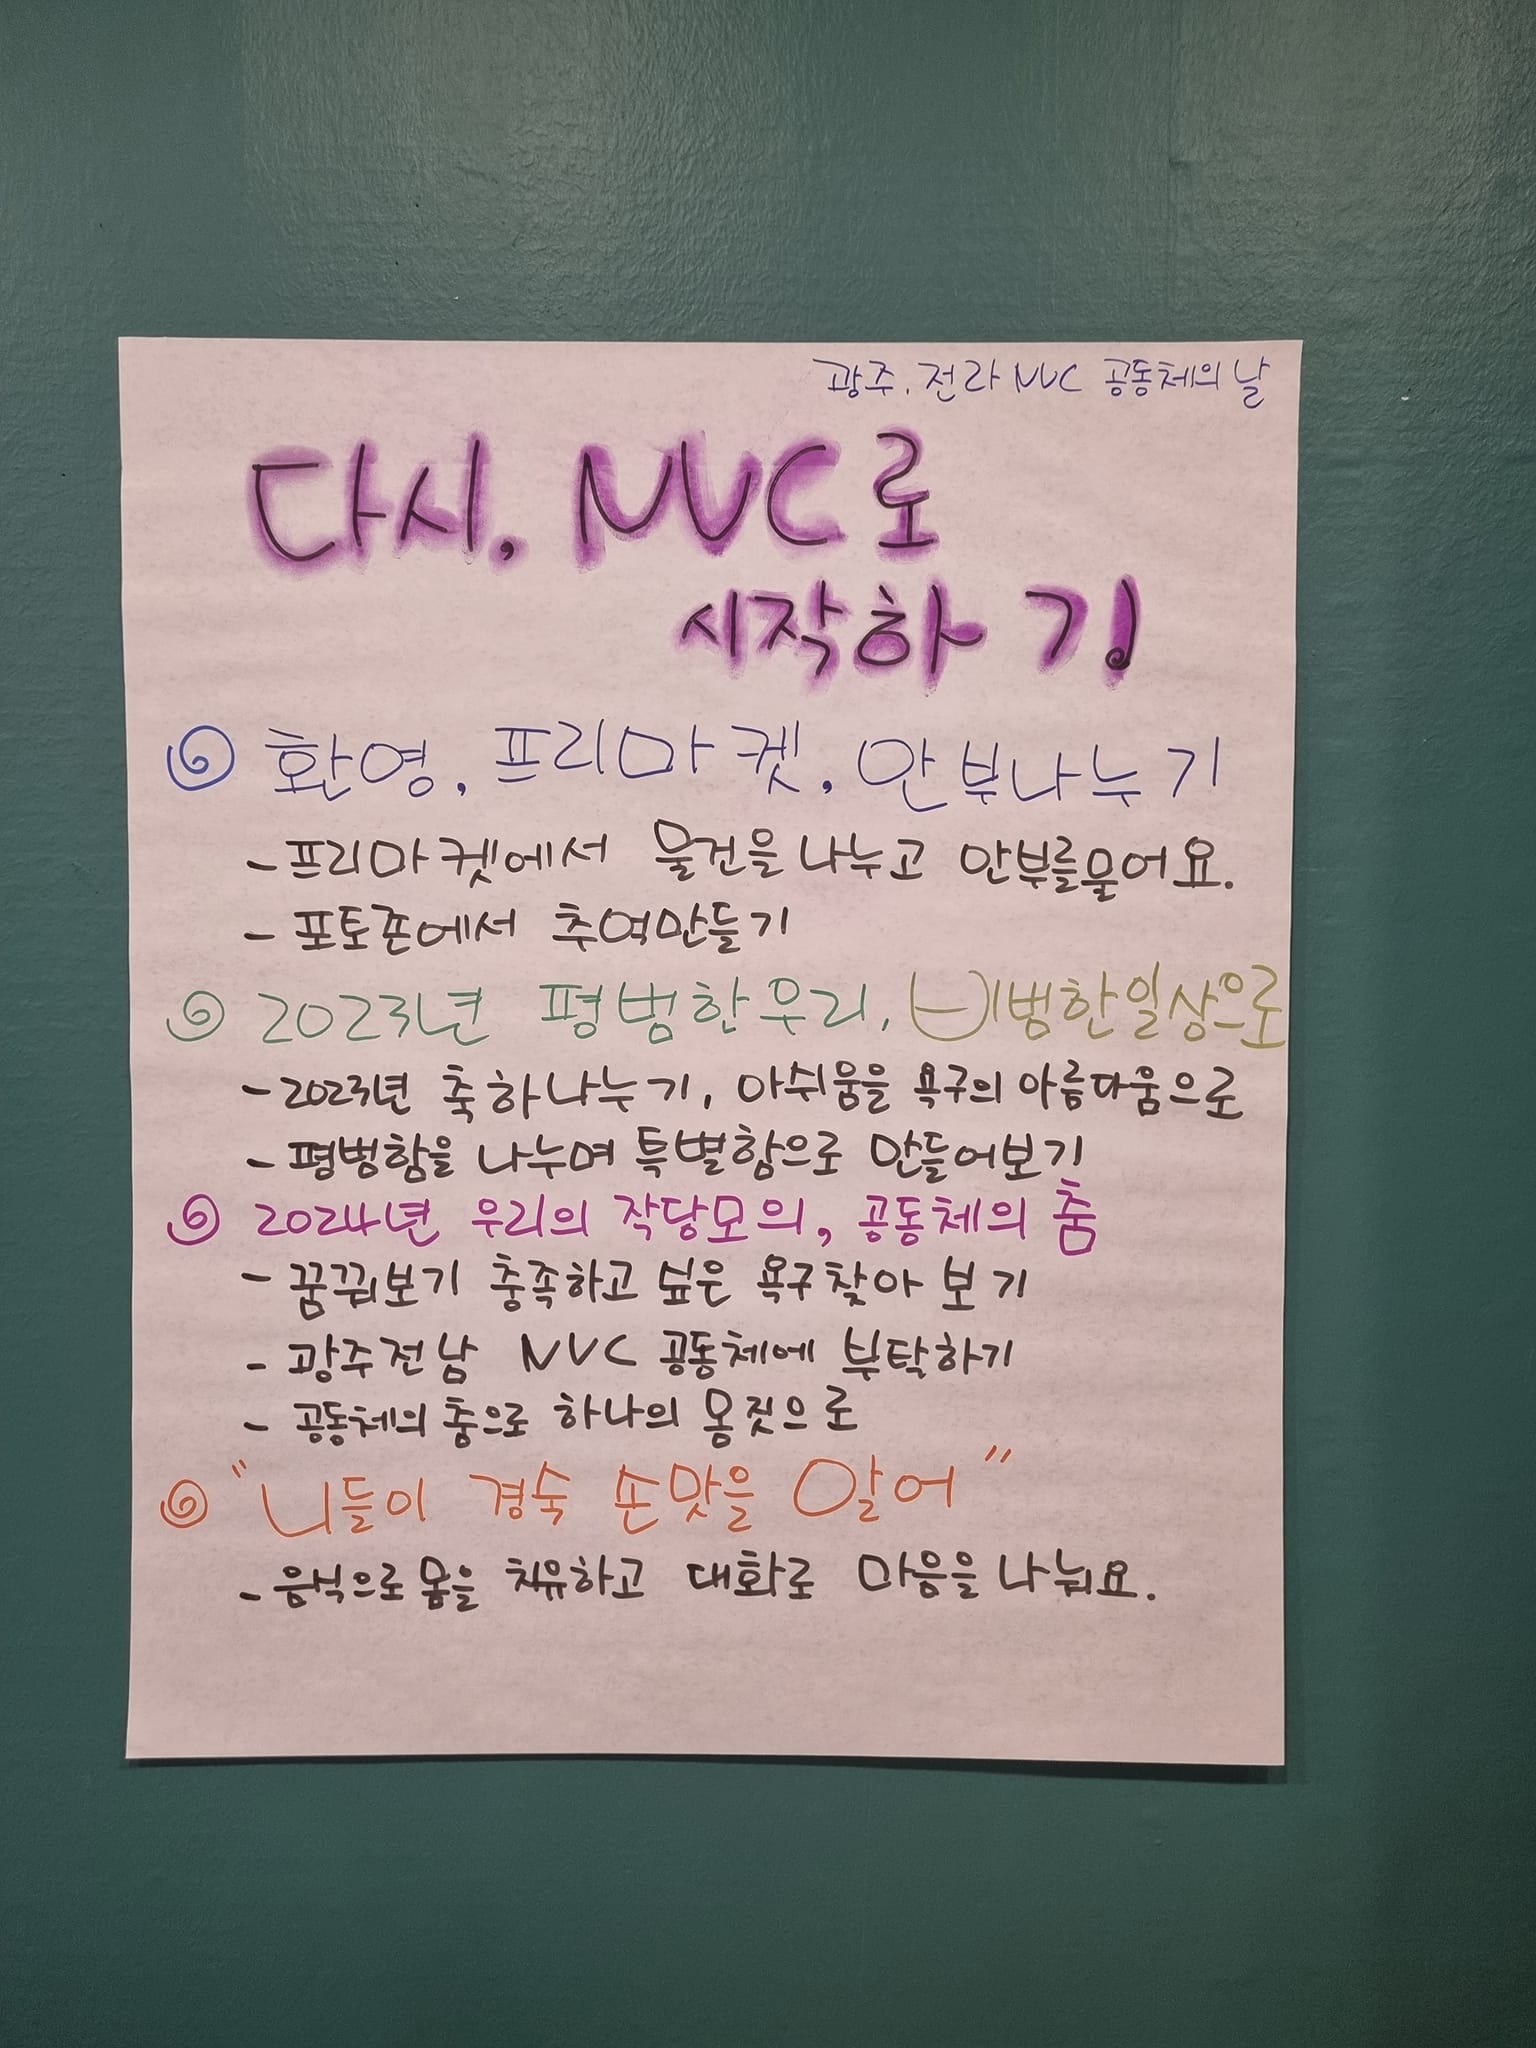 광주.전라 NVC 공동체의 날
다시, NVC로
시작하기
환영, 프리마켓, 안부나누기
- 프리마켓에서 물건을 나누고 안부를물어요.
- 포토존에서 추억만들기
2023년 평범한우리, 비범한일상으로
- 2023년 축하나누기, 아쉬움을 욕구의 아름다움으로
- 평범함을 나누며 특별함으로 만들어보기
2024년 우리의 작당모의, 공동체의 춤
- 꿈꿔보기 충족하고 싶은 욕구찾아 보기
- 광주전남 NVC 공동체에 부탁하기
- 공동체의 춤으로 하나의 몸짓으로
"니들이 경숙 손맛을 알어"
- 음식으로 몸을 치유하고 대화로 마음을 나눠요.